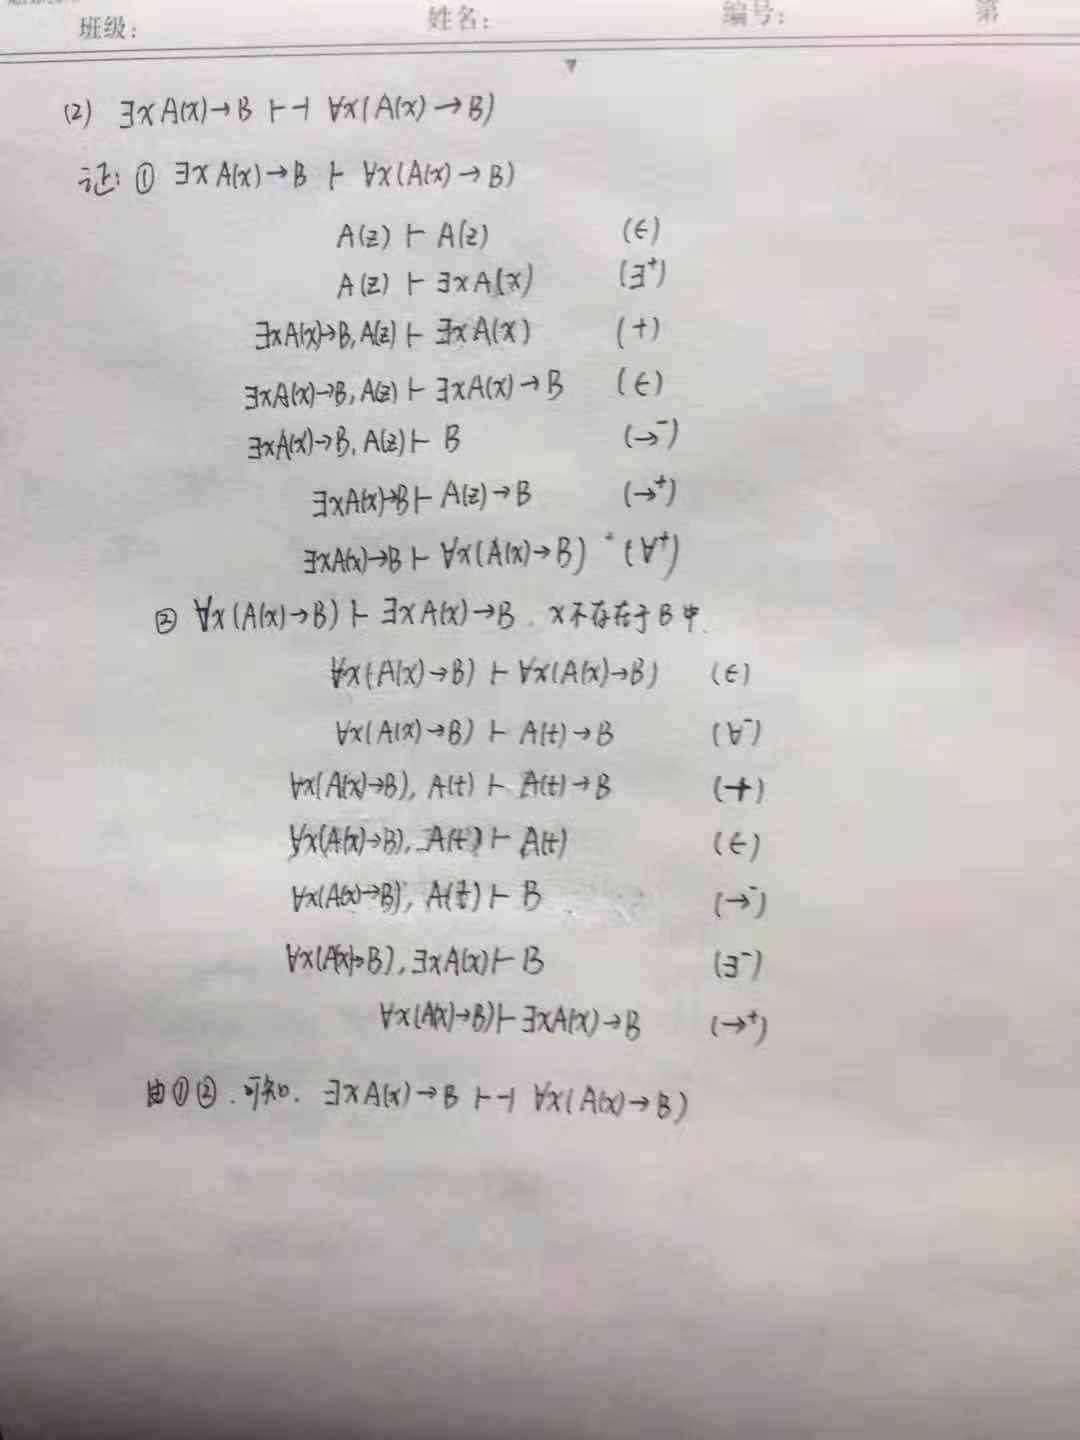 班级: 姓名: 编号: 第
(2) ∃xA(x)→B ⊢⊣ ∀x(A(x)→B)
证: ① ∃xA(x)→B ⊢ ∀x(A(x)→B)
A(z) ⊢ A(z) (∈)
A(z) ⊢ ∃xA(x) (∃⁺)
∃xA(x)→B, A(z) ⊢ ∃xA(x) (+)
∃xA(x)→B, A(z) ⊢ ∃xA(x)→B (∈)
∃xA(x)→B, A(z) ⊢ B (→⁻)
∃xA(x)→B ⊢ A(z)→B (→⁺)
∃xA(x)→B ⊢ ∀x(A(x)→B) (∀⁺)
② ∀x(A(x)→B) ⊢ ∃xA(x)→B. x不存在于B中.
∀x(A(x)→B) ⊢ ∀x(A(x)→B) (∈)
∀x(A(x)→B) ⊢ A(t)→B (∀⁻)
∀x(A(x)→B), A(t) ⊢ A(t)→B (+)
∀x(A(x)→B), A(t) ⊢ A(t) (∈)
∀x(A(x)→B), A(t) ⊢ B (→⁻)
∀x(A(x)→B), ∃xA(x) ⊢ B (∃⁻)
∀x(A(x)→B) ⊢ ∃xA(x)→B (→⁺)
由①②.可知. ∃xA(x)→B ⊢⊣ ∀x(A(x)→B)